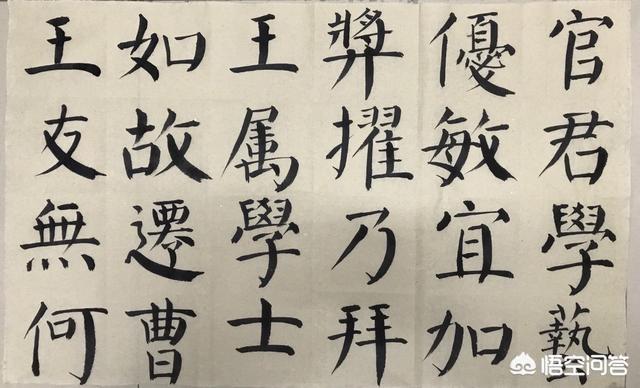 官君學藝
優敏宜加
獎擢乃拜
王属學士
如故遷曹
王友無何
悟空问答